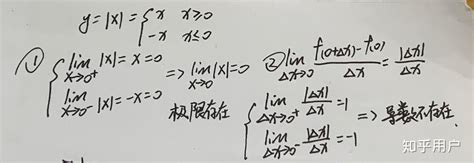 y=|x|={x x≥0
-x x≤0
① {lim x→0⁺ |x|=x=0
lim x→0⁻ |x|=-x=0
=> lim x→0 |x|=0
极限存在
② lim Δx→0 f(0+Δx)-f(0)/Δx = |Δx|/Δx
{lim Δx→0⁺ |Δx|/Δx=1
lim Δx→0⁻ |Δx|/Δx=-1
=> 导数不存在.
知乎用户